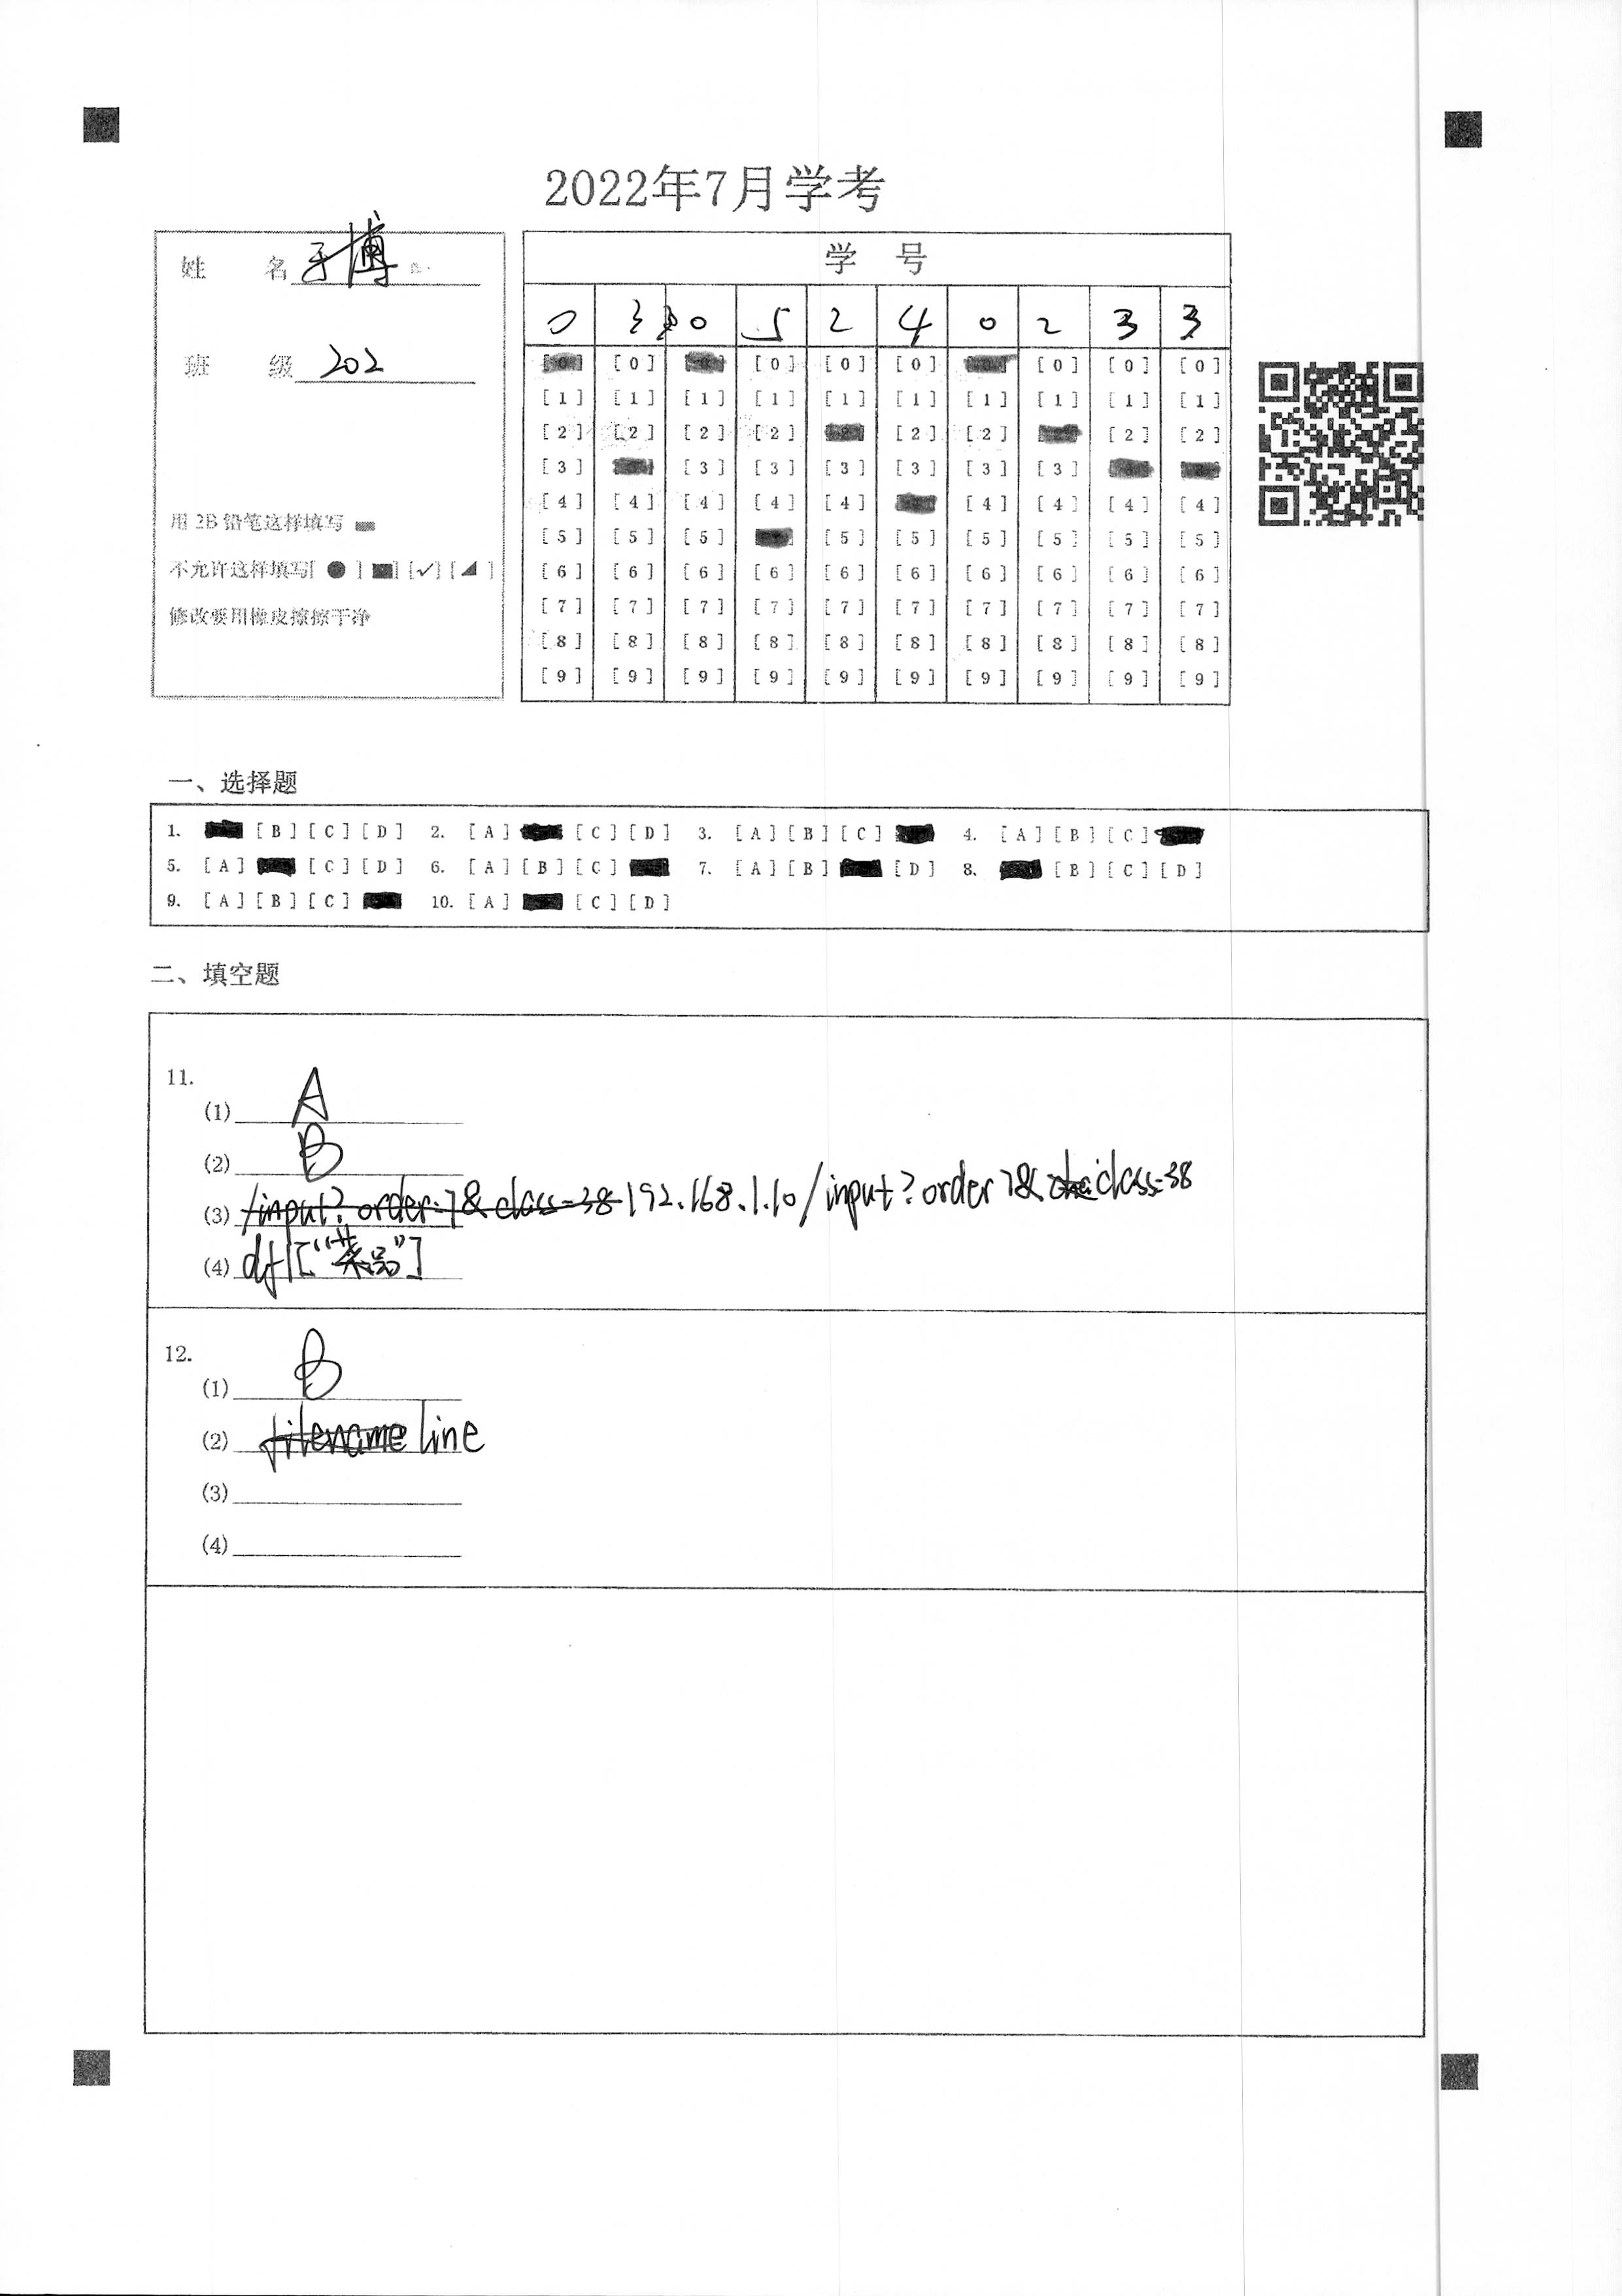 2022年7月学考
姓 名 于博
班 级 202
用 2B 铅笔这样填写
不允许这样填写[ ● ] [■] [✓] [◢ ]
修改要用橡皮擦擦干净
学 号
0 3 0 5 2 4 0 2 3 3
[0] [0] [0] [0] [0] [0] [0] [0] [0] [0]
[1] [1] [1] [1] [1] [1] [1] [1] [1] [1]
[2] [2] [2] [2] [2] [2] [2]
[3] [3] [3] [3] [3] [3] [3]
[4] [4] [4] [4] [4] [4] [4] [4] [4]
[5] [5] [5] [5] [5] [5] [5] [5] [5]
[6] [6] [6] [6] [6] [6] [6] [6] [6] [6]
[7] [7] [7] [7] [7] [7] [7] [7] [7] [7]
[8] [8] [8] [8] [8] [8] [8] [8] [8] [8]
[9] [9] [9] [9] [9] [9] [9] [9] [9] [9]
一、选择题
1. [B] [C] [D] 2. [A] [C] [D] 3. [A] [B] [C] 4. [A] [B] [C]
5. [A] [C] [D] 6. [A] [B] [C] 7. [A] [B] [D] 8、 [B] [C] [D]
9. [A] [B] [C] 10. [A] [C] [D]
二、填空题
11.
(1) A
(2) B
(3) /input?order=7&class=38 192.168.1.10/input?order7&class=38
(4) df1["菜品"]
12.
(1) B
(2) filename line
(3)
(4)